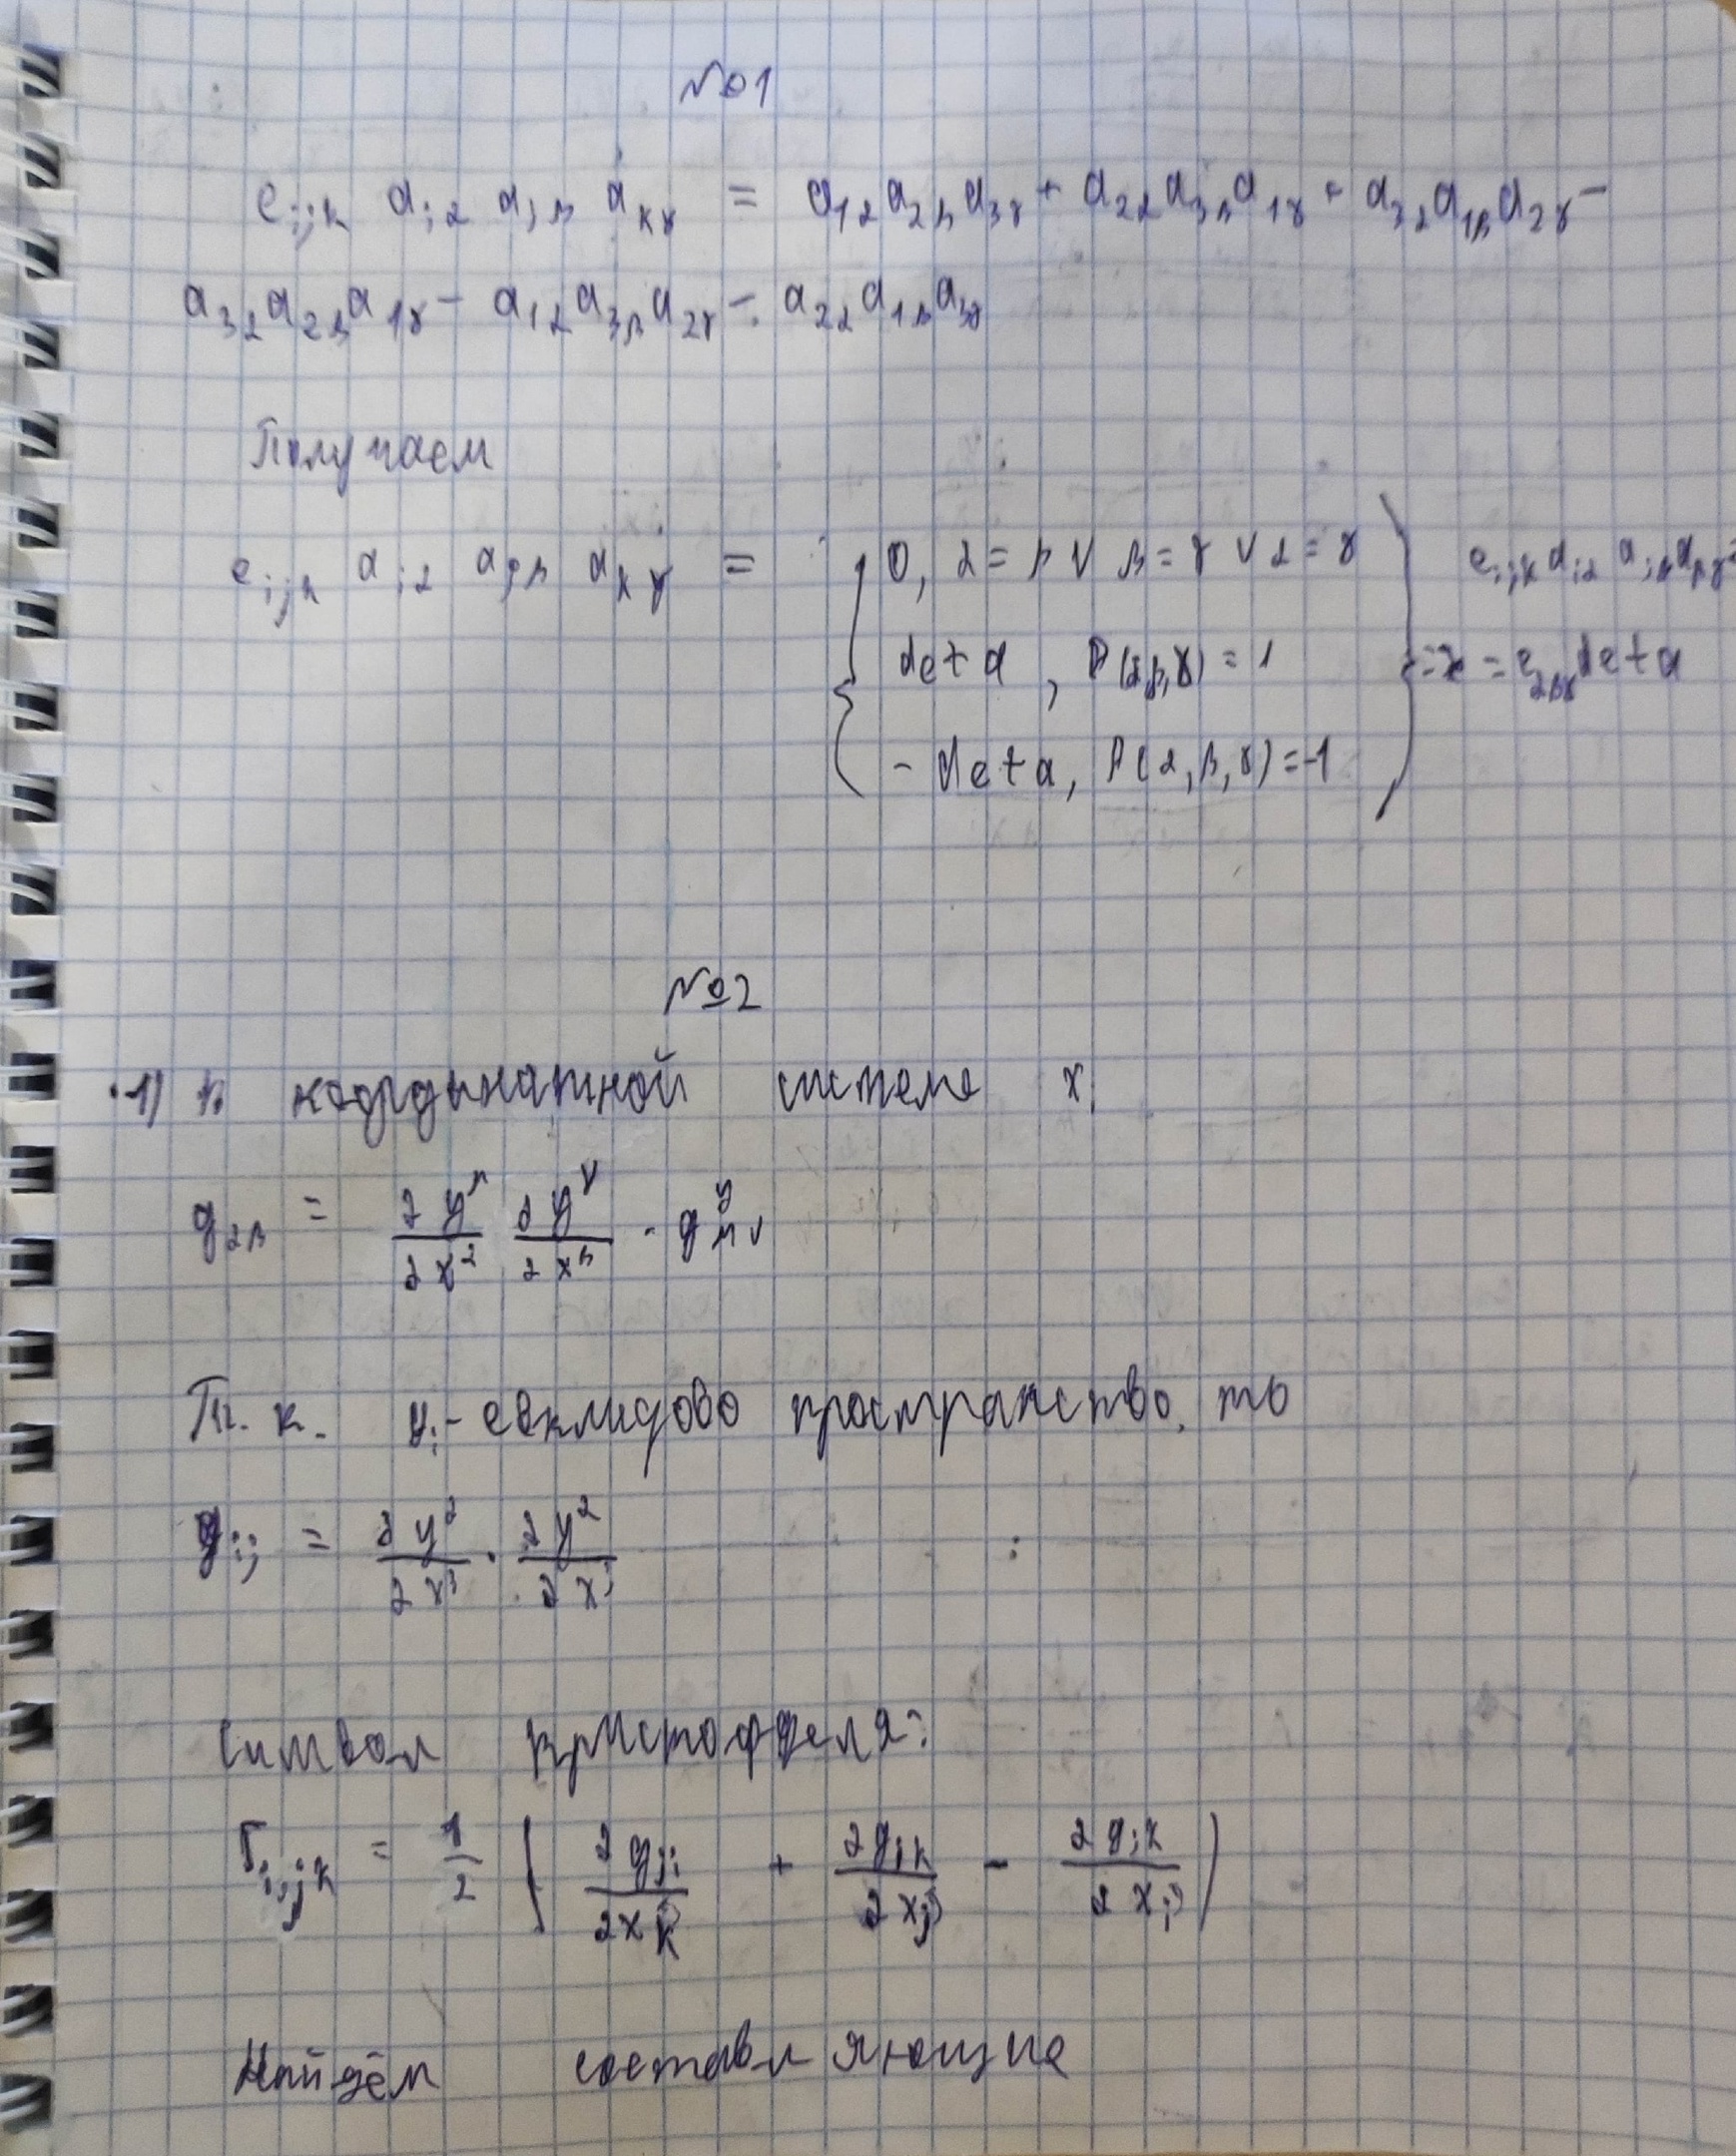 №1
e_{ijk} a_{iα} a_{jβ} a_{kγ} = a_{1α} a_{2β} a_{3γ} + a_{2α} a_{3β} a_{1γ} + a_{3α} a_{1β} a_{2γ} −
a_{3α} a_{2β} a_{1γ} − a_{1α} a_{3β} a_{2γ} − a_{2α} a_{1β} a_{3γ}
Получаем
e_{ijk} a_{iα} a_{jβ} a_{kγ} = { 0, α = β ∨ β = γ ∨ α = γ } e_{ijk} a_{iα} a_{jβ} a_{kγ} =
det a, P(α,β,γ) = 1 => = e_{αβγ} det a
− det a, P(α,β,γ) = −1
№2
1) В координатной системе x_i
g_{αβ} = ∂y^μ/∂x^α ∂y^ν/∂x^β · g^y_{μν}
Т. к. y_i − евклидово пространство, то
g_{ij} = ∂y^α/∂x^i · ∂y^α/∂x^j
Символ Кристоффеля:
Γ_{i,jk} = 1/2 ( ∂g_{ji}/∂x_k + ∂g_{ik}/∂x_j − ∂g_{jk}/∂x_i )
Найдём составляющие